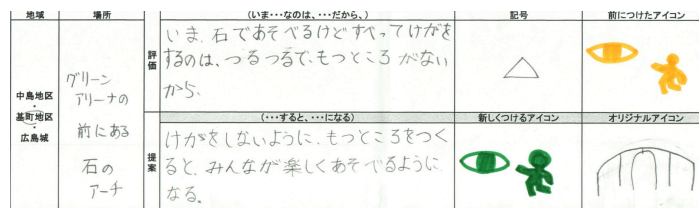 地域
場所
(いま・・・なのは、・・・だから、)
記号
前につけたアイコン
中島地区
・
基町地区
・
広島城
グリーン
アリーナの
前にある
石の
アーチ
評価
いま、石であそべるけどすべってけがを
するのは、つるつるで、もつところがない
から。
(・・・すると、・・・になる)
新しくつけるアイコン
オリジナルアイコン
提案
けがをしないように、もつところをつく
ると、みんなが楽しくあそべるように
なる。